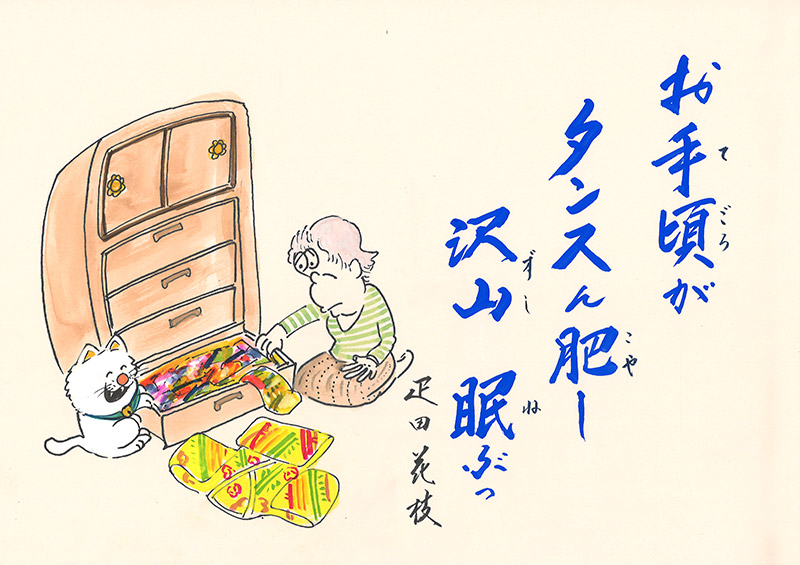 お手頃が
タンスん肥ー
沢山 眠ぶっ
疋田花枝
てごろ
こや
ずし
ね